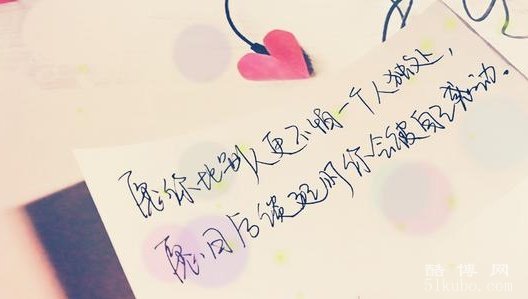 愿你比别人更不怕一个人独处，
愿日后谈起时你会被自己感动。
酷博网
51kubo.com